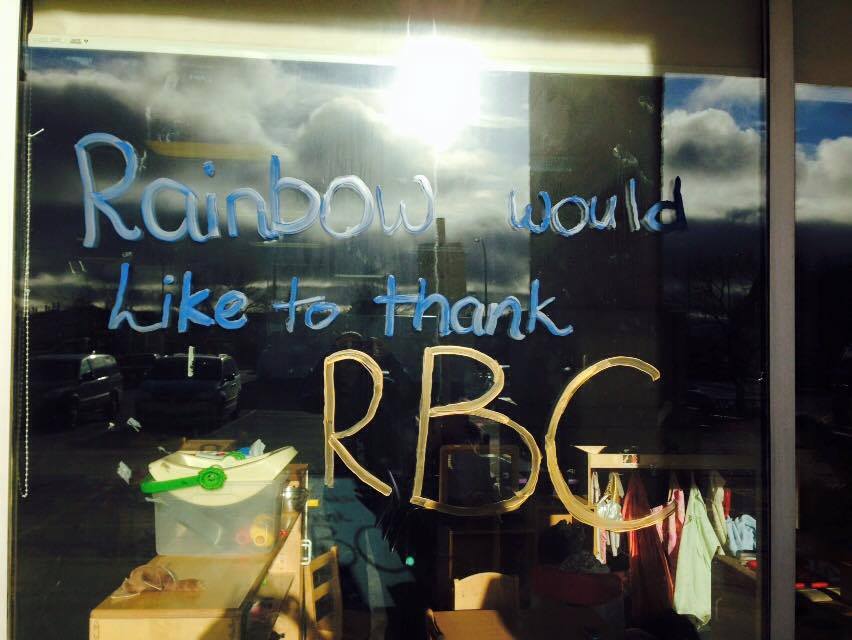 Rainbow would
Like to thank
RBC